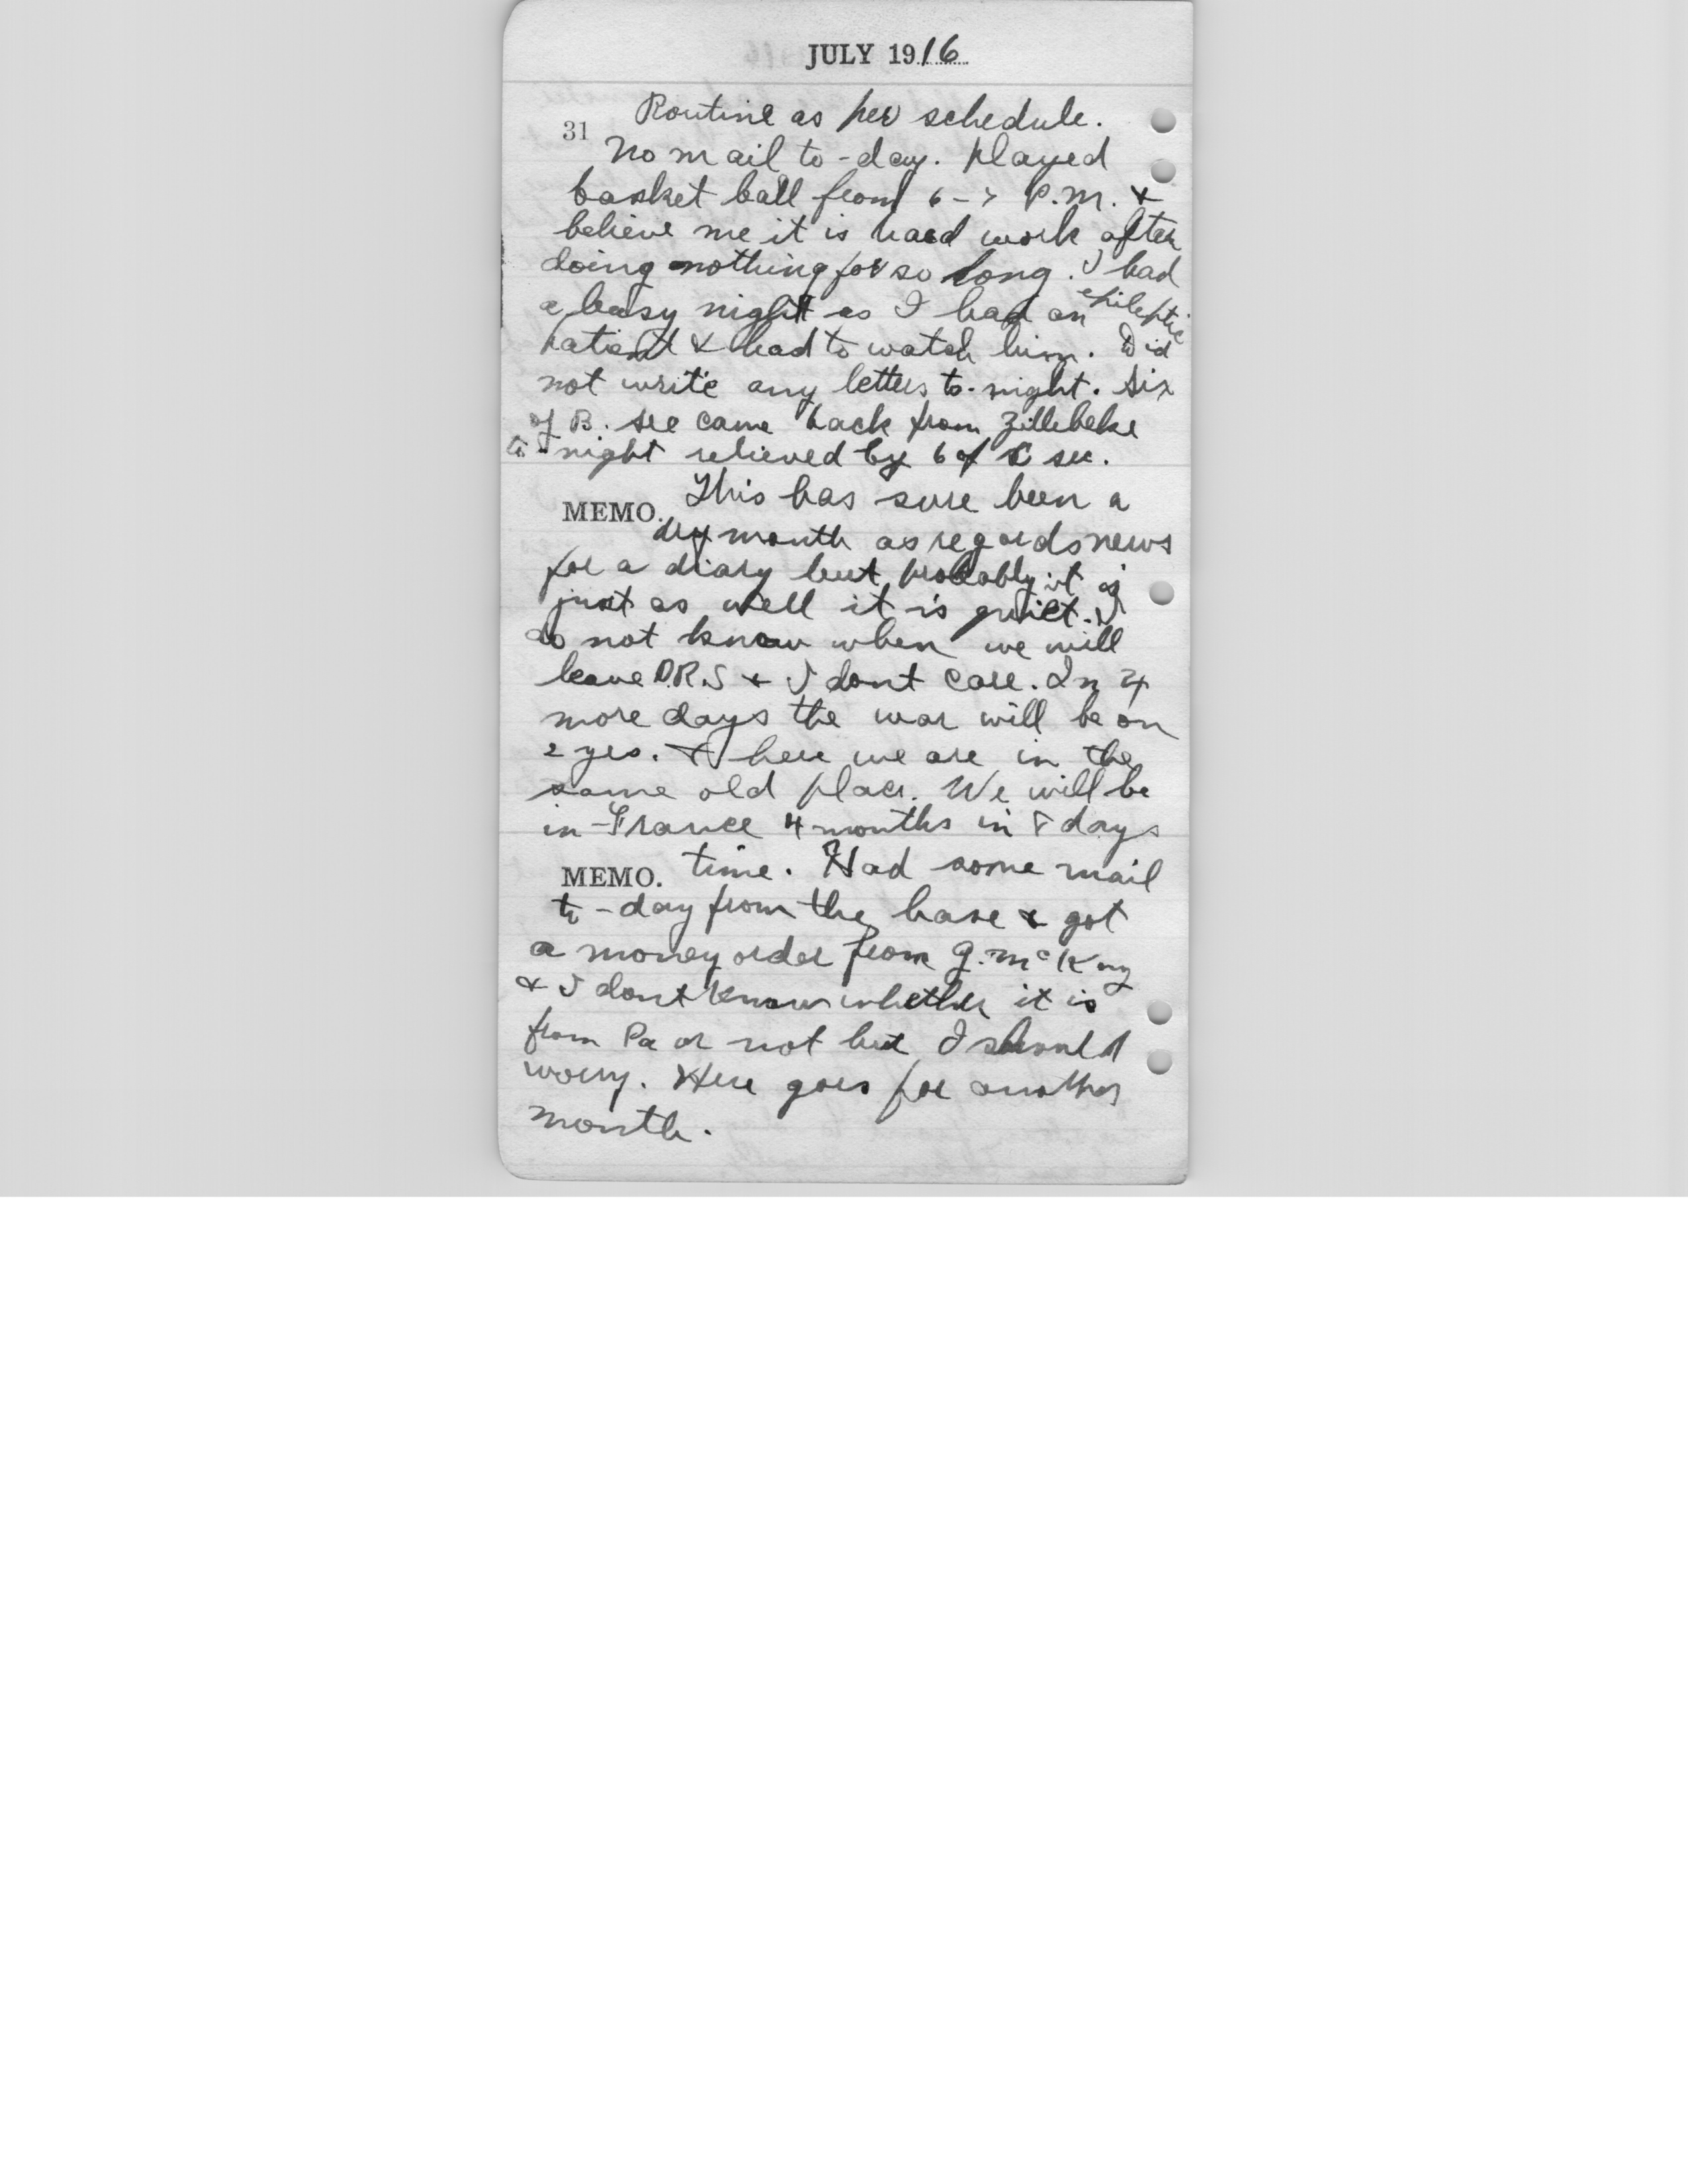 JULY 1916
Routine as per schedule.
31 No mail to-day. Played
basket ball from 6-7 P.M. &
believe me it is hard work after
doing nothing for so long. I had
a busy night as I had an epileptic
patient & had to watch him. Did
not write any letters to-night. Six
of B. sec came back from Zillebeke
to-night relieved by 6 of C sec.
MEMO. This has sure been a
dry month as regards news
for a diary but probably it is
just as well it is quiet. I
do not know when we will
leave D.R.S & I dont care. In 4
more days the war will be on
2 yrs. & here we are in the
same old place. We will be
in France 4 months in 8 days
MEMO. time. Had some mail
to-day from the base & got
a money order from G. McK
& I dont know whether it is
from Pa or not but I should
worry. Here goes for another
month.